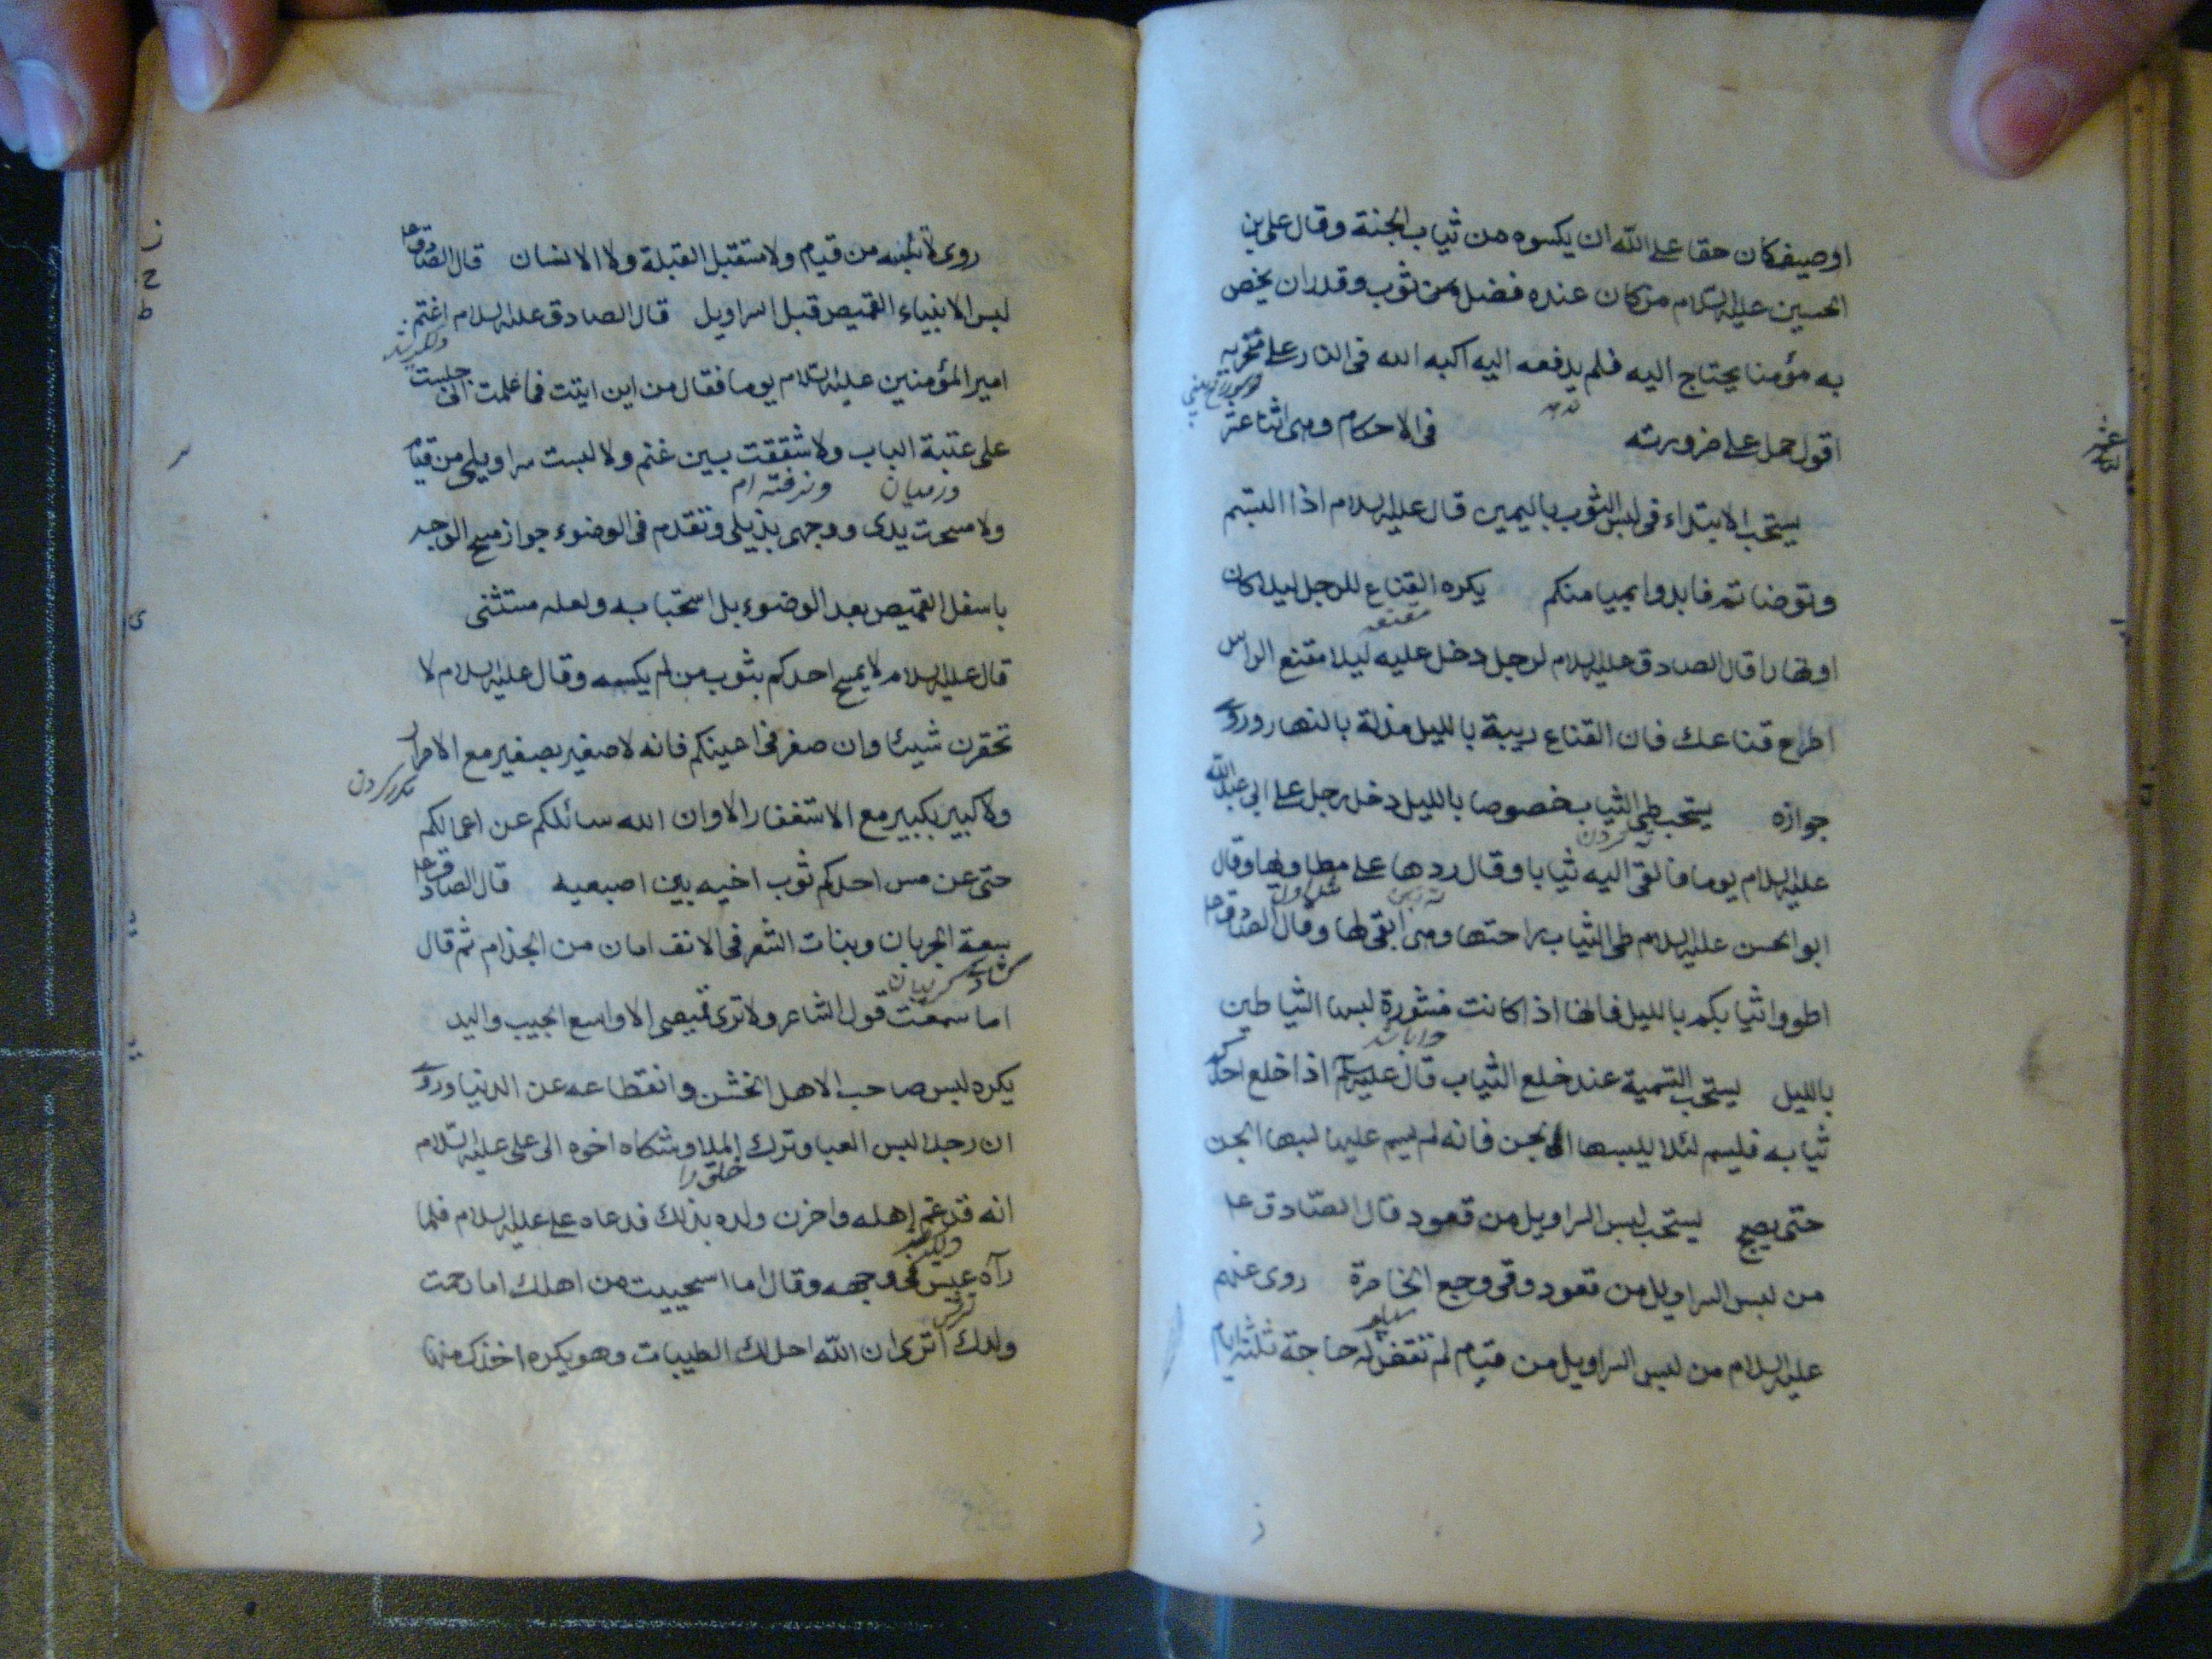 او صيف كان حقا على الله ان يكسوه من ثياب الجنة وقال على بن
الحسين عليه السلام من كان عنده فضل من ثوب وقدر ان يخص
به مؤمنا يحتاج اليه فلم يدفعه اليه اكبه الله فى النار على منخريه
اقول حمل على ضرورته فى الاحكام وهى اثنا عشر
يستحب الابتداء فى لبس الثوب باليمين قال عليه السلام اذا لبستم
وتوضاتم فابدوا بميامنكم يكره القناع للرجل ليلا كان
او نهارا قال الصادق عليه السلام لرجل دخل عليه ليلا مقنع الراس
اطرح قناعك فان القناع ريبة بالليل مذلة بالنهار وروى
جوازه يستحب طى الثياب خصوصا بالليل دخل رجل على ابى عبد الله
كردن
عليه السلام يوما فالقى اليه ثيابا وقال ردها على مطاويها وقال
ابو الحسن عليه السلام طى الثياب راحتها وهى ابقى لها وقال الصادق ع
اطووا ثيابكم بالليل فانها اذا كانت منشورة لبسها الشياطين
بالليل يستحب التسمية عند خلع الثياب قال عليه السلام اذا خلع احدكم
ثيابه فليسم لئلا يلبسها الجن فانه لم يسم عليها لبسها الجن
حتى يصبح يستحب لبس السراويل من قعود قال الصادق ع
من لبس السراويل من قعود وقى وجع الخاصرة روى عنهم
عليه السلام من لبس السراويل من قيام لم تقض له حاجة ثلثة ايام
روى لا تلبسه من قيام ولا مستقبل القبلة ولا الانسان قال الصادق ع
لبس الانبياء القميص قبل السراويل قال الصادق عليه السلام اغتم
امير المؤمنين عليه السلام يوما فقال من اين اتيت فما علمت انى جلست
على عتبة الباب ولا شققت بين غنم ولا لبست سراويلى من قيام
در ميان ونرفته ام
ولا مسحت يدى ووجهى بذيلى وتقدم فى الوضوء جواز مسح الوجه
باسفل القميص بعد الوضوء بل استحبابه ولعله مستثنى
قال عليه السلام لا يمسح احدكم بثوب من لم يكسه وقال عليه السلام لا
تحقرن شيئا وان صغر فى اعينكم فانه لا صغير بصغير مع الاصرار
ولا كبير بكبير مع الاستغفار الا وان الله سائلكم عن اعمالكم
حتى عن مس احدكم ثوب اخيه بين اصبعيه قال الصادق ع
سعة الجربان ونبات الشعر فى الانف امان من الجذام ثم قال
كريبان
اما سمعت قول الشاعر ولا ترى قميصى الا واسع الجيب واليد
يكره لبس صاحب الاهل الخشن وانقطاعه عن الدنيا وروى
ان رجلا لبس العبا وترك الملا وشكاه اخوه الى على عليه السلام
انه قد غم اهله واحزن ولده بذلك فدعاه على عليه السلام فلما
رآه عبس فى وجهه وقال اما استحييت من اهلك اما رحمت
ترش
ولدك اترى ان الله احل لك الطيبات وهو يكره اخذك منها